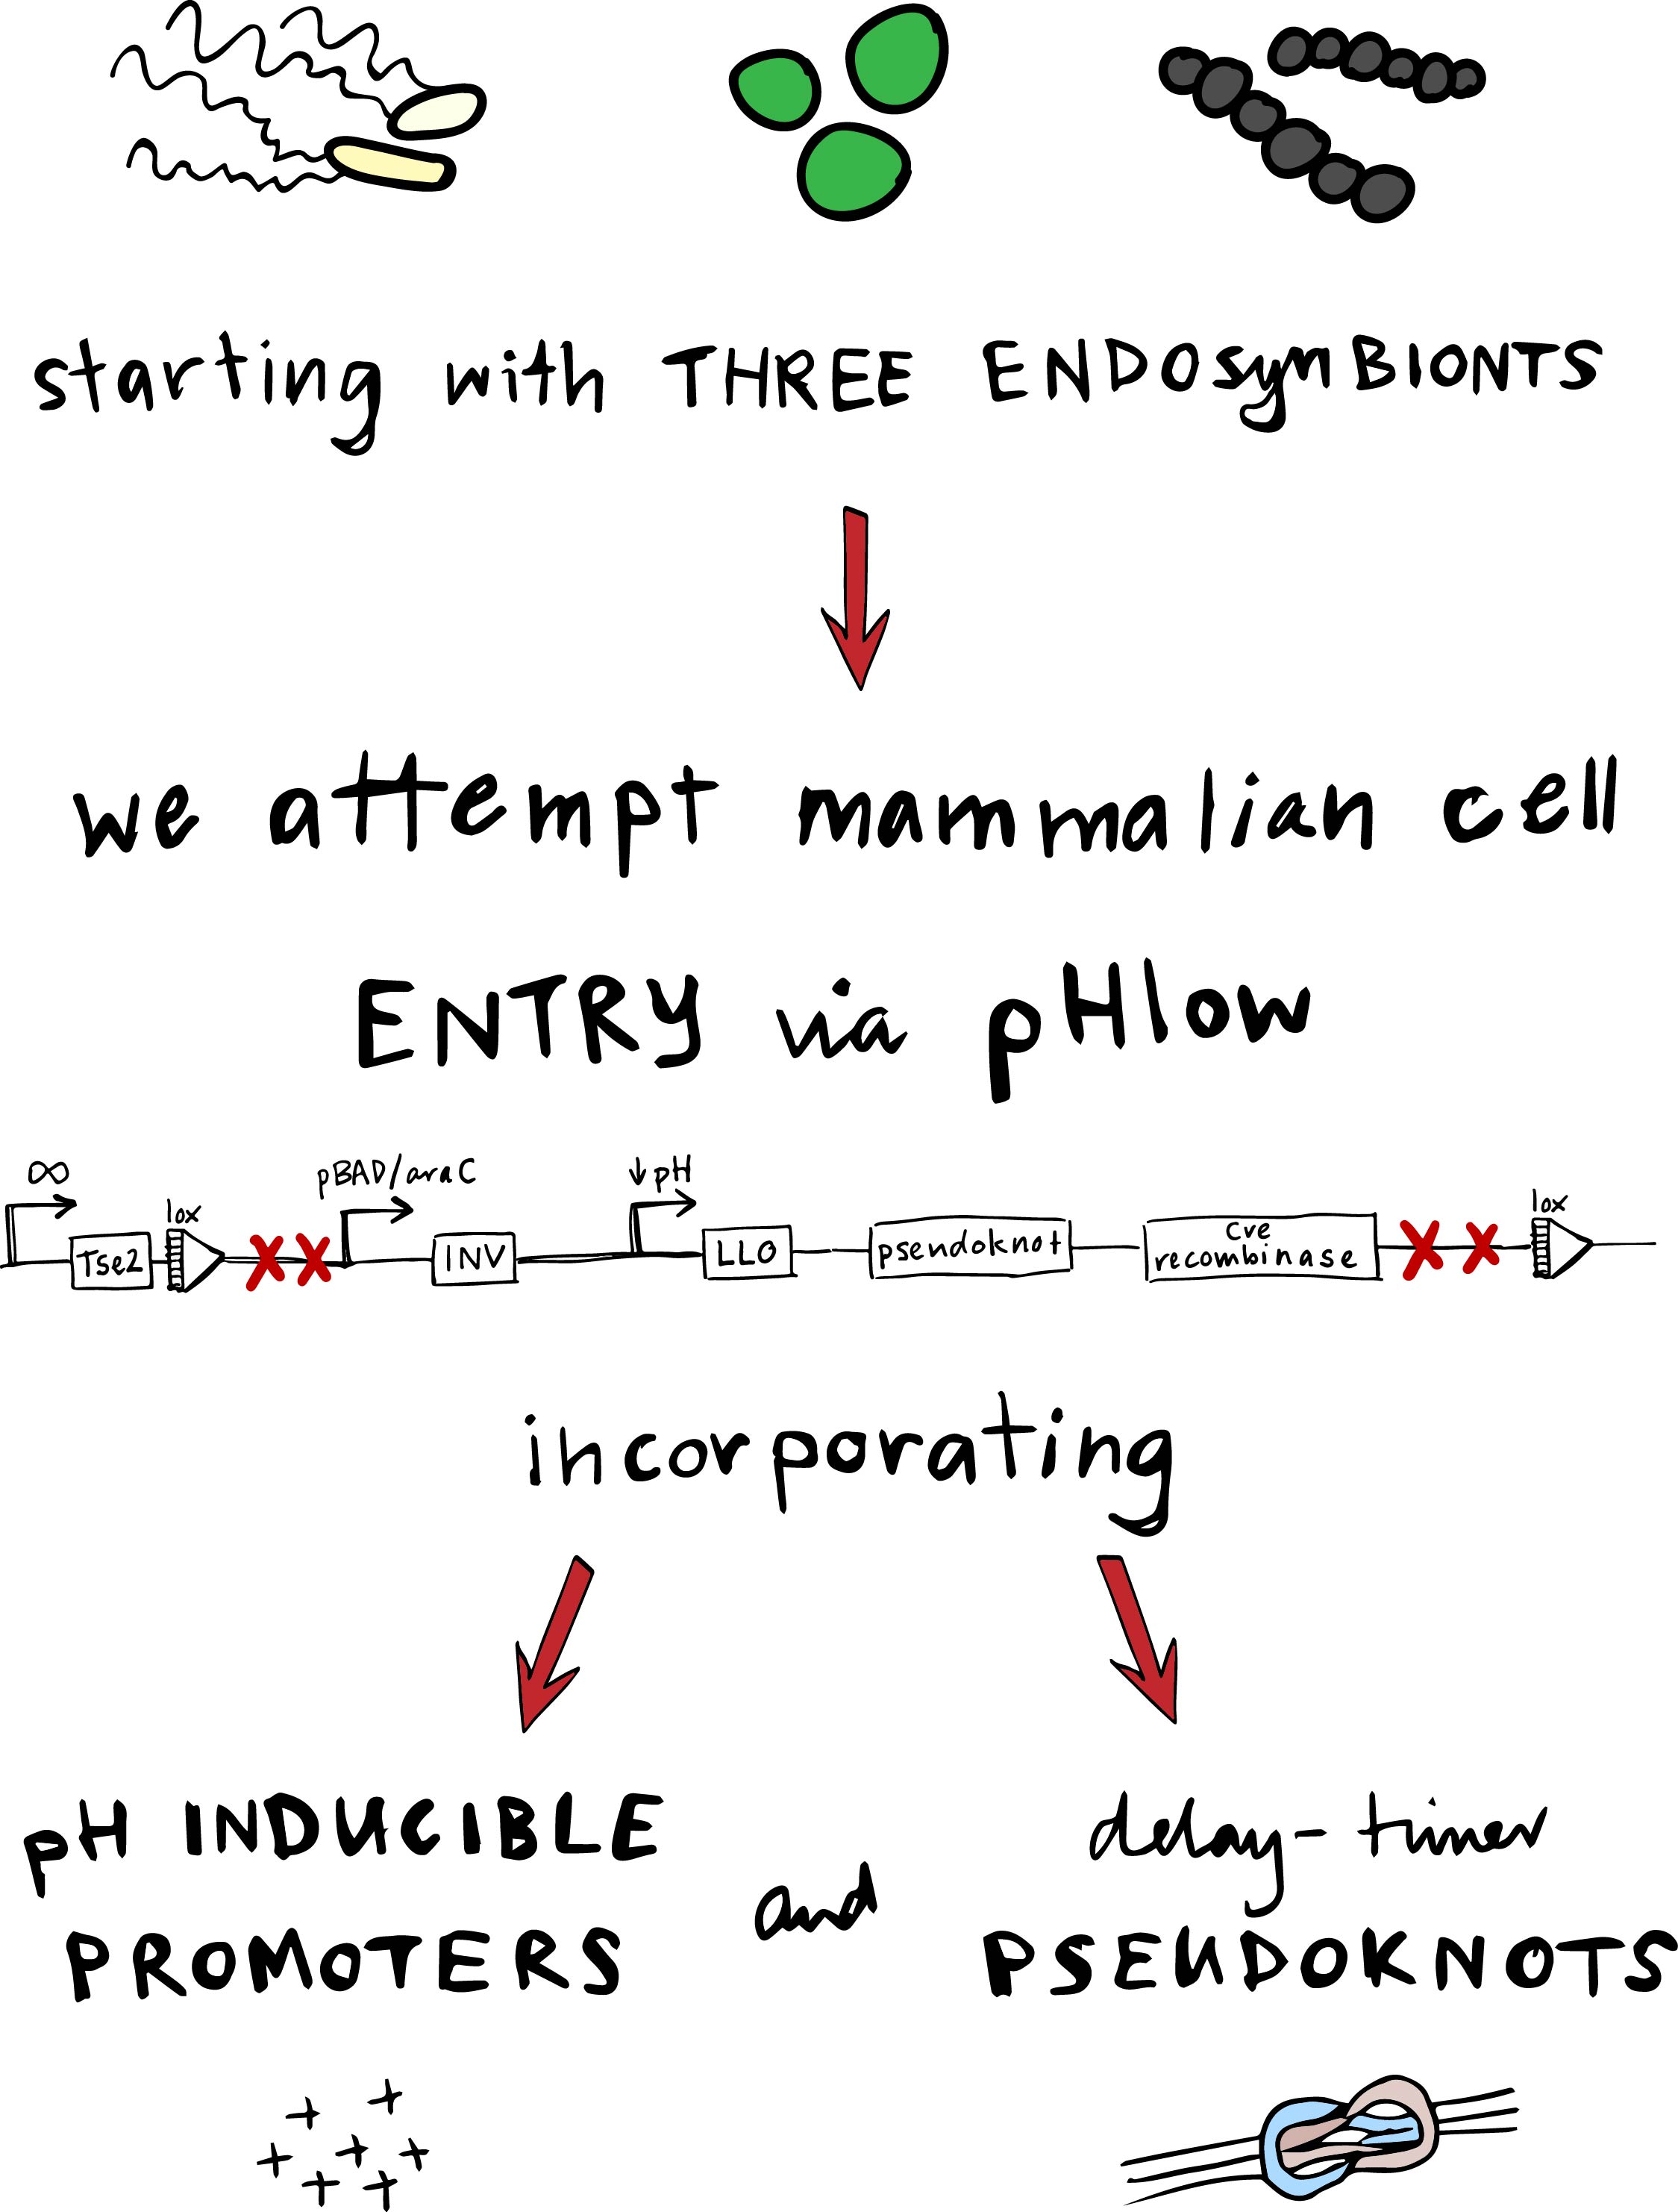 starting with THREE ENDOsymBIONTS
we attempt mammalian cell
ENTRY via pHlow
∞ pBAD/araC ↓pH
lox lox
Tse2 INV LLO pseudoknot cre recombinase
incorporating
pH INDUCIBLE
PROMOTERS
and
delay-timer
PSEUDOKNOTS